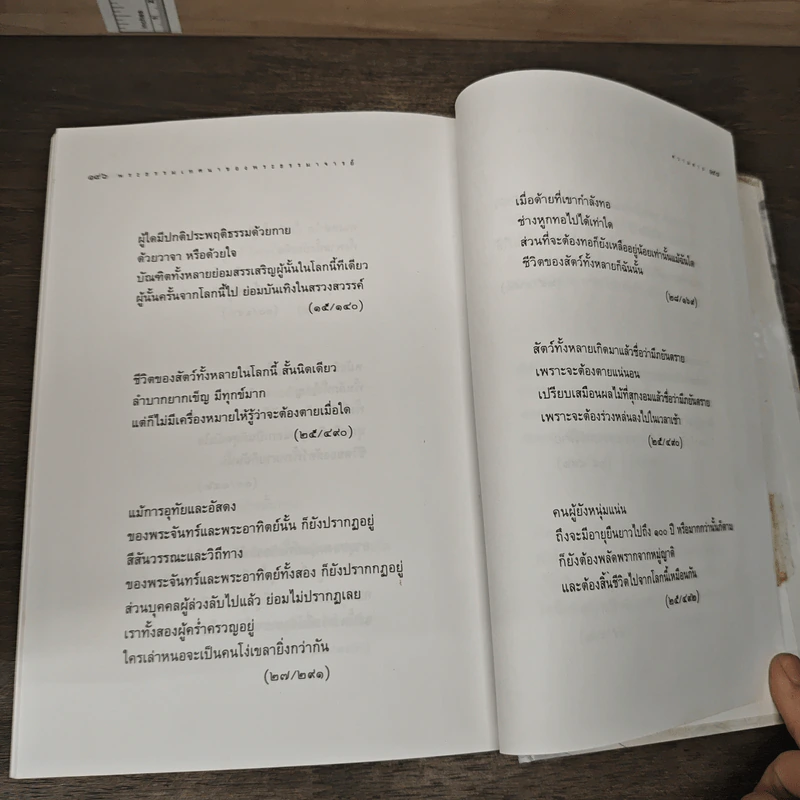 ๑๙๖ พระธรรมเทศนาของพระธรรมาจารย์
ผู้ใดมีปกติประพฤติธรรมด้วยกาย
ด้วยวาจา หรือด้วยใจ
บัณฑิตทั้งหลายย่อมสรรเสริญผู้นั้นในโลกนี้ทีเดียว
ผู้นั้นครั้นจากโลกนี้ไป ย่อมบันเทิงในสรวงสวรรค์
(๑๕/๑๔๐)
ชีวิตของสัตว์ทั้งหลายในโลกนี้ สั้นนิดเดียว
ลำบากยากเข็ญ มีทุกข์มาก
แต่ก็ไม่มีเครื่องหมายให้รู้ว่าจะต้องตายเมื่อใด
(๒๕/๔๙๐)
แม้การอุทัยและอัสดง
ของพระจันทร์และพระอาทิตย์นั้น ก็ยังปรากฏอยู่
สีสันวรรณะและวิถีทาง
ของพระจันทร์และพระอาทิตย์ทั้งสอง ก็ยังปรากกฏอยู่
ส่วนบุคคลผู้ล่วงลับไปแล้ว ย่อมไม่ปรากฏเลย
เราทั้งสองผู้คร่ำครวญอยู่
ใครเล่าหนอจะเป็นคนโง่เขลายิ่งกว่ากัน
(๒๗/๒๙๑)
ความตาย
เมื่อด้ายที่เขากำลังทอ
ช่างหูกทอไปได้เท่าใด
ส่วนที่จะต้องทอก็ยังเหลืออยู่น้อยเท่านั้นแม้ฉันใด
ชีวิตของสัตว์ทั้งหลายก็ฉันนั้น
(๒๘/๑๖๙)
สัตว์ทั้งหลายเกิดมาแล้วชื่อว่ามีภยันตราย
เพราะจะต้องตายแน่นอน
เปรียบเสมือนผลไม้ที่สุกงอมแล้วชื่อว่ามีภยันตราย
เพราะจะต้องร่วงหล่นลงไปในเวลาเช้า
(๒๕/๔๙๐)
คนผู้ยังหนุ่มแน่น
ถึงจะมีอายุยืนยาวไปถึง ๑๐๐ ปี หรือมากกว่านั้นก็ตาม
ก็ยังต้องพลัดพรากจากหมู่ญาติ
และต้องสิ้นชีวิตไปจากโลกนี้เหมือนกัน
(๒๕/๔๙๒)
inches